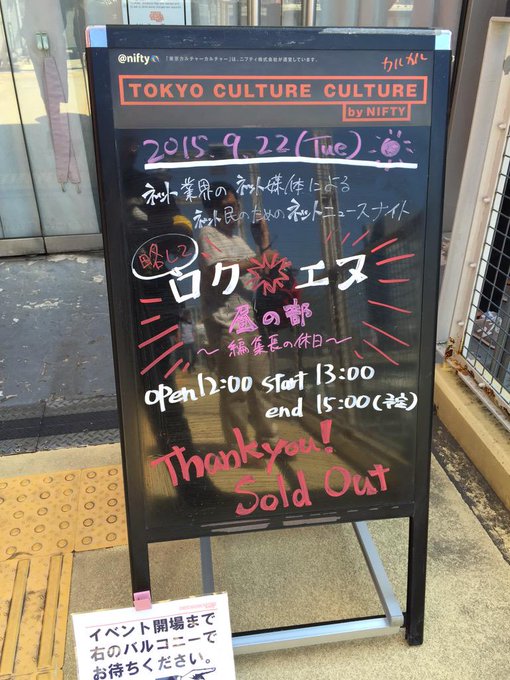 @nifty 「東京カルチャーカルチャー」は、ニフティ株式会社が運営しています。
カルカル
TOKYO CULTURE CULTURE
by NIFTY
2015.9.22(Tue)
ネット業界のネット媒体による
ネット民のためのネットニュースナイト
略して
ロク エヌ
昼の部
～編集長の休日～
open 12:00 start 13:00
end 15:00(予定)
Thankyou!
Sold Out
イベント開場まで
右のバルコニーで
お待ちください。